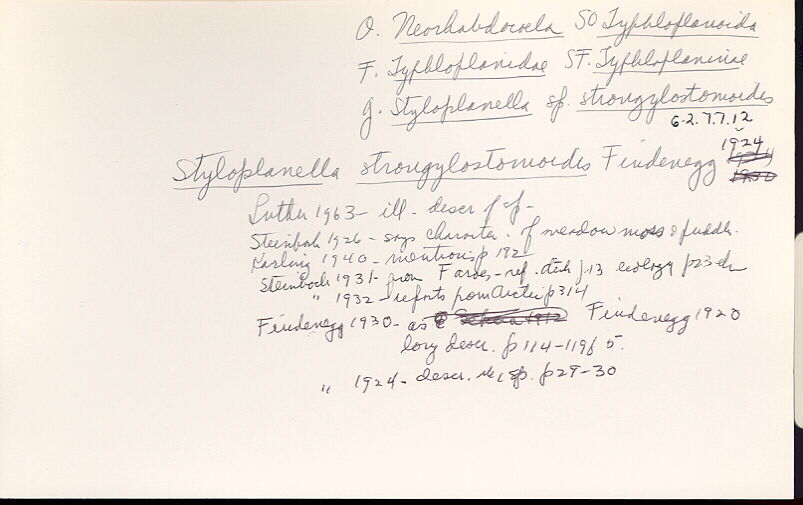 O. Neorhabdocoela SO Typhloplanoida
F. Typhloplanidae SF. Typhloplaninae
g. Styloplanella sp. strongylostomoides
6.2.7.7.12
Styloplanella strongylostomoides Findenegg 1924
Luther 1963 - ill - descr of sp -
Steinböck 1926 - says character. of meadow moss & puddle.
Karling 1940 - mentions p 192
Steinböck 1931 - from Faroes - ref. dist p 13 ecology p 23
" 1932 - reports from Arctic p 314
Findenegg 1930 - as Findenegg 1920
long descr. p 114-119 f 5.
" 1924 - descr. sp. p 29-30